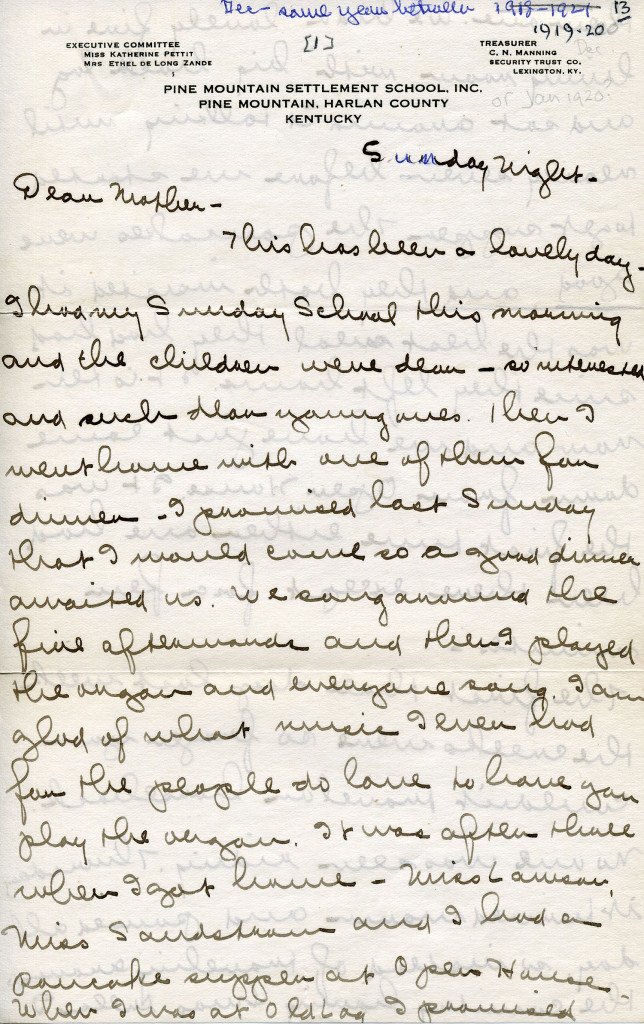 Dec - some year between 1918-1921 13
1919-20
[1]
Dec
or Jan 1920.
EXECUTIVE COMMITTEE
MISS KATHERINE PETTIT
MRS ETHEL DE LONG ZANDE
TREASURER
C. N. MANNING
SECURITY TRUST CO.
LEXINGTON, KY.
PINE MOUNTAIN SETTLEMENT SCHOOL, INC.
PINE MOUNTAIN, HARLAN COUNTY
KENTUCKY
Sunday Night -
Dear Mother -
This has been a lovely day -
I had my Sunday School this morning
and the children were dear - so interested
and such dear young ones. Then I
went home with one of them for
dinner - I promised last Sunday
that I would come so a good dinner
awaited us. We sang around the
fire afterwards and then I played
the organ and everyone sang. I am
glad of what music I ever had
for the people do love to have you
play the organ. It was after three
when I got home - Miss Lawson,
Miss Sandstrom and I had a
pancake supper at Open House -
When I was at Old Log I promised